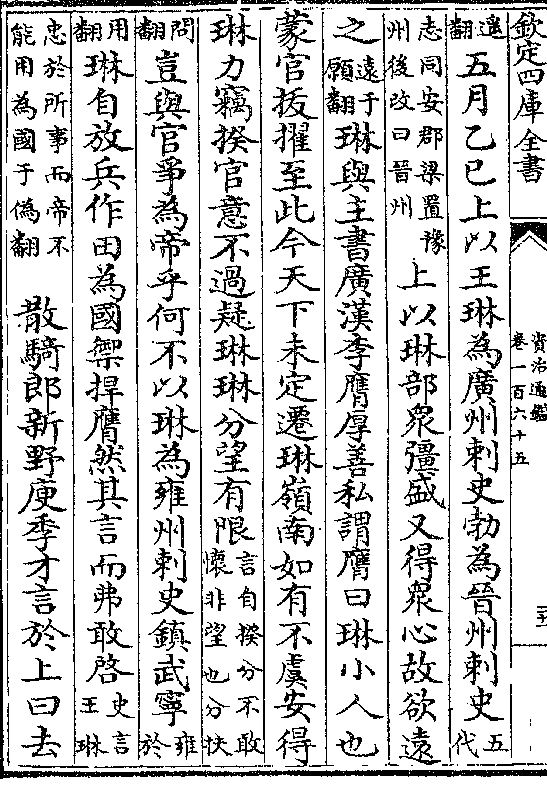 欽定四庫全書
資治通鑑
卷一百六十五
翻五月乙巳上以王琳為廣州刺史勃為晉州刺史五代
志同安郡梁置豫州後改曰晉州上以琳部衆彊盛又得衆心故欲遠
之遠于願翻琳與主書廣漢李膺厚善私謂膺曰琳小人也
蒙官拔擢至此今天下未定遷琳嶺南如有不虞安得
琳力竊揆官意不過疑琳琳分望有限言自揆分不敢懷非望也分扶
問翻豈與官爭為帝乎何不以琳為雍州刺史鎮武寧雍於
用翻琳自放兵作田為國禦捍膺然其言而弗敢啓史言王琳
忠於所事而帝不能用為國于偽翻散騎郎新野庾季才言於上曰去